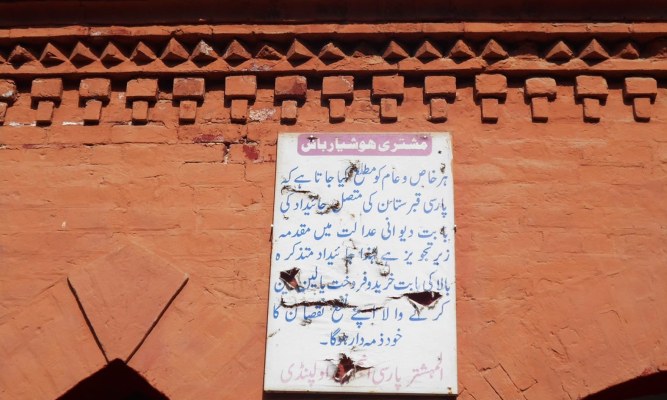 مشتری ہوشیار باش
ہر خاص و عام کو مطلع کیا جاتا ہے کہ
پارسی قبرستان کی متصل جائیداد کی
بابت دیوانی عدالت میں مقدمہ
زیر تجویز ہے لہٰذا جائیداد متذکرہ
بالا کی بابت خرید و فروخت یا لین دین
کرنے والا اپنے نفع نقصان کا
خود ذمہ دار ہوگا۔
المشتہر پارسی راولپنڈی